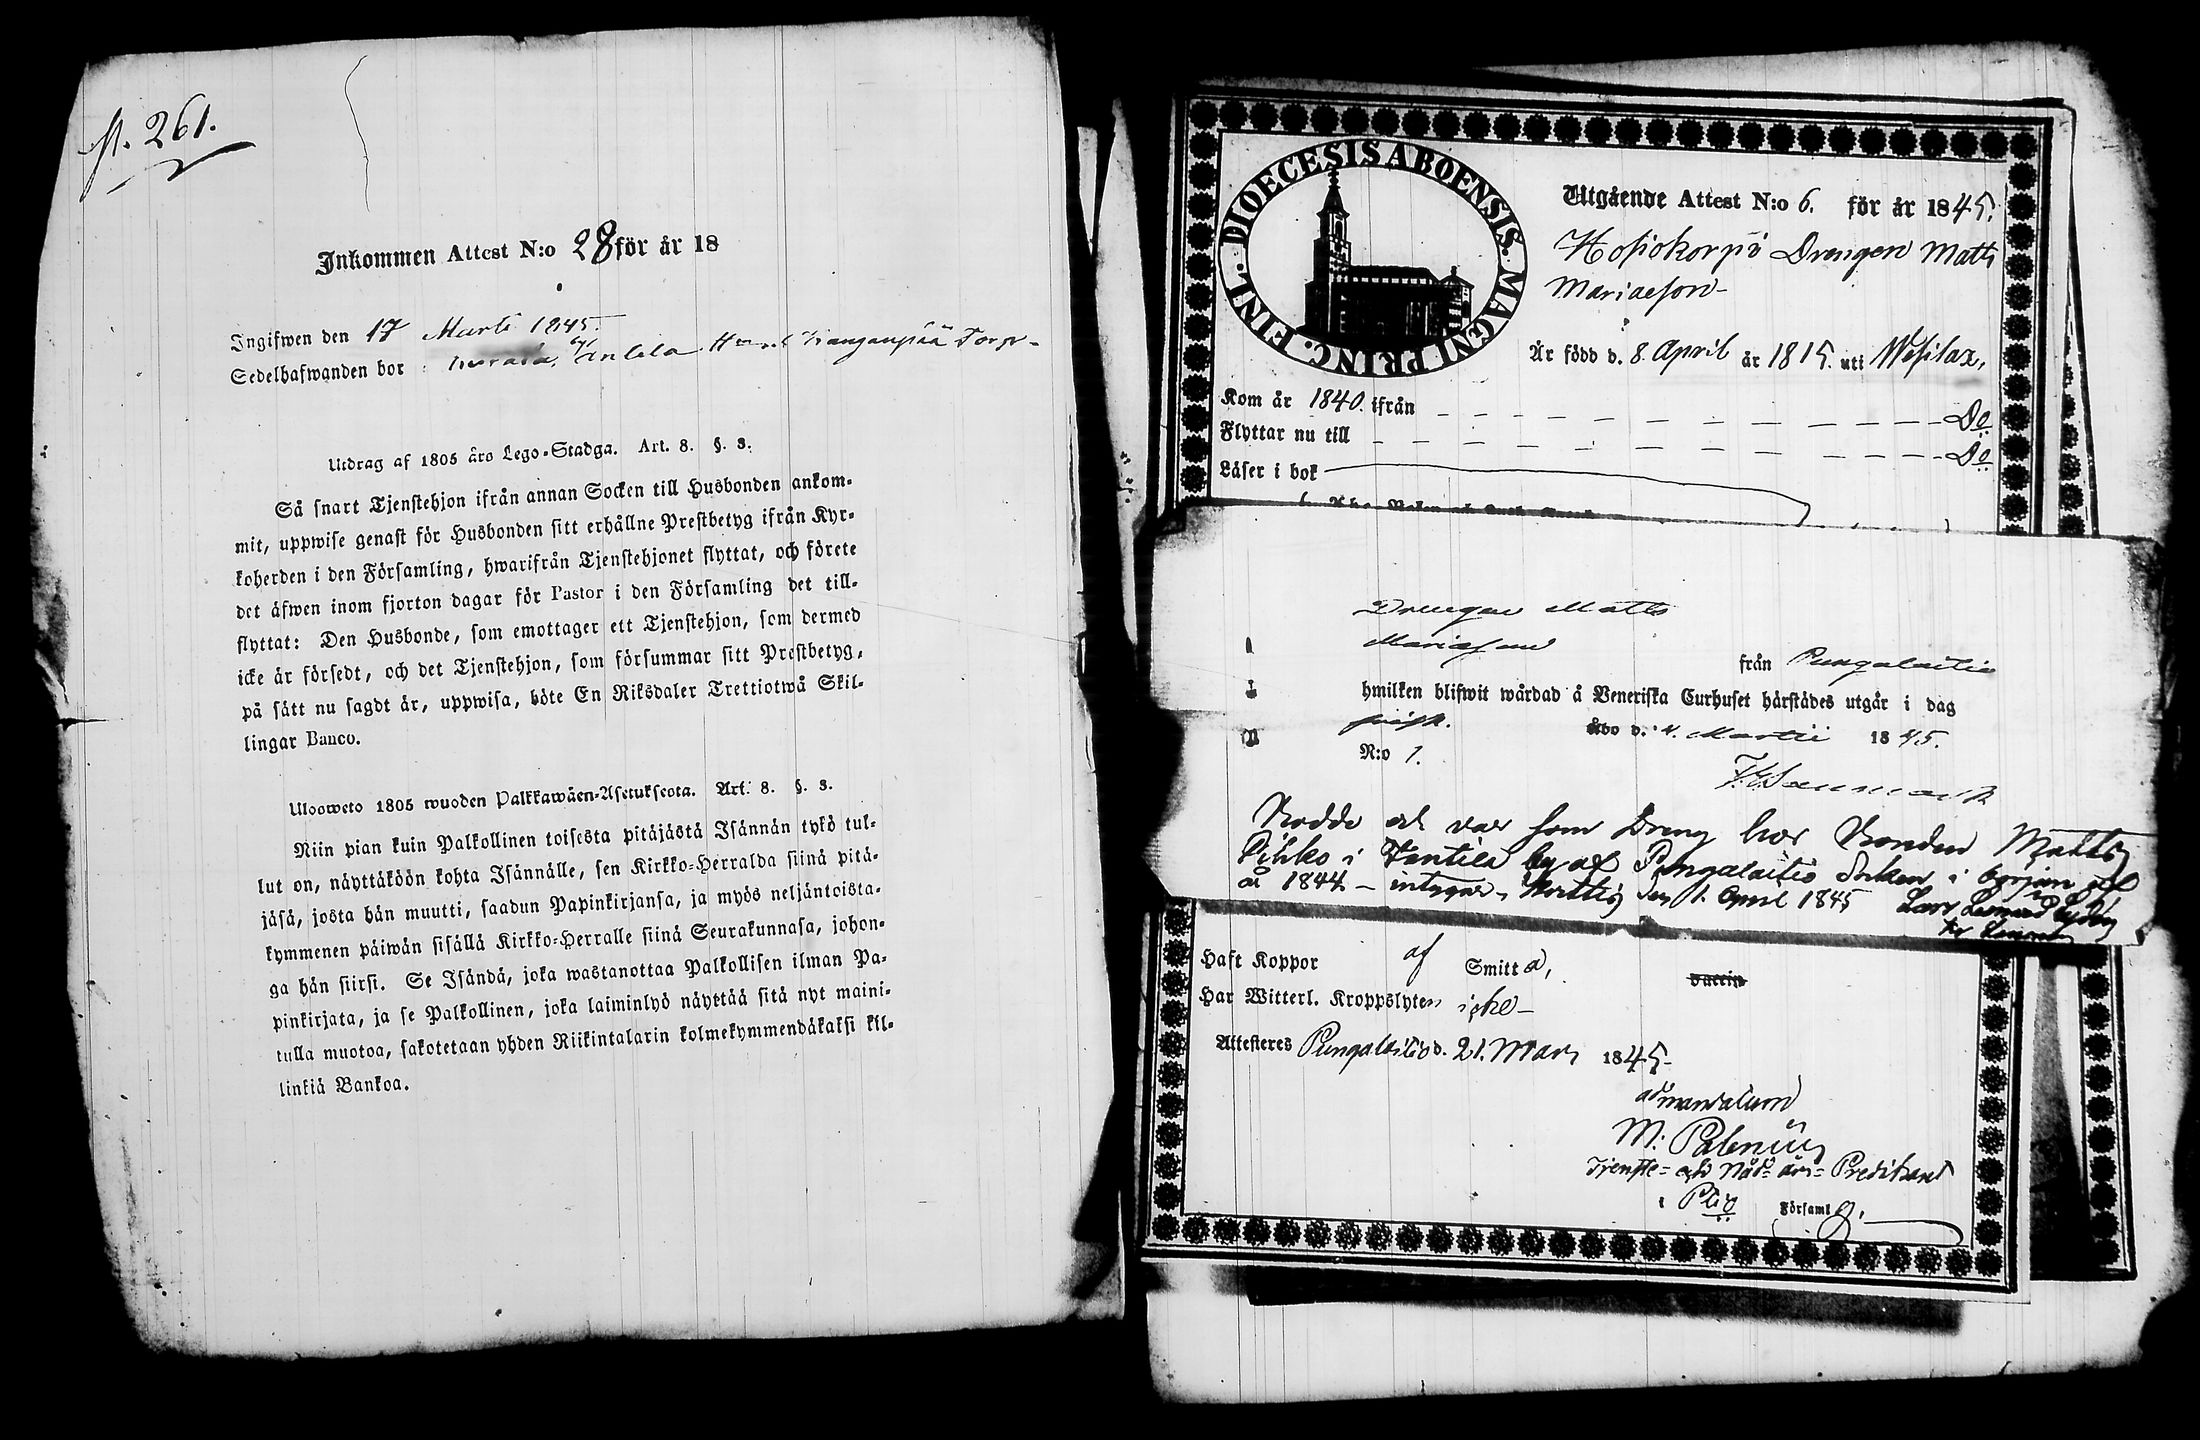 261.
Inkommen Attest N:o 28 för år 18
Ingifwen den 17 Marti 1845.
Sedelhafwanden bor Anlela Torp
Utdrag af 1805 års Lego-Stadga. Art. 8. §. 3.
Så snart Tjenstehjon ifrån annan Socken till Husbonden ankom-
mit, uppwise genast för Husbonden sitt erhållne Prestbetyg ifrån Kyr-
koherden i den Församling, hwarifrån Tjenstehjonet flyttat, och förete
det äfwen inom fjorton dagar för Pastor i den Församling det till-
flyttat: Den Husbonde, som emottager ett Tjenstehjon, som dermed
icke är försedt, och det Tjenstehjon, som försummar sitt Prestbetyg,
på sätt nu sagdt är, uppwisa, böte En Riksdaler Trettiotwå Skil-
lingar Banco.
Uloosweto 1805 wuoden Palkkawäen-Asetuksesta. Art. 8. §. 3.
Niin pian kuin Palkollinen toisesta pitäjästä Isännän tykö tul-
lut on, näyttäköön kohta Isännälle, sen Kirkko-Herralda siinä pitä-
jäsä, josta hän muutti, saadun Papinkirjansa, ja myös neljäntoista-
kymmenen päiwän sisällä Kirkko-Herralle siinä Seurakunnasa, johon-
ga hän siirsi. Se Isändä, joka wastanottaa Palkollisen ilman Pa-
pinkirjata, ja se Palkollinen, joka laiminlyö näyttää sitä nyt maini-
tulla muotoa, sakotetaan yhden Riikintalarin kolmekymmendäkaksi kil-
linkiä Bankoa.
DIOECESIS ABOENSIS. MAGNI PRINC. FINL.
Utgående Attest N:o 6. för år 1845.
Hosiokorpi Drengen Matts
Mariaeson
Är född d. 8 April år 1815. uti Wesilax,
Kom år 1840. ifrån Do
Flyttar nu till Do
Läser i bok
Drengen Matts
Mariaeson
från Pungalaitio
hwilken blifwit wårdad å Veneriska Curhuset härstädes utgår i dag
frisk. Åbo d. 4. Martii 1845.
N:o 1.
Födde och var som Dreng hos Bonden Matts
Pihko i Yentilä by af Pungalaitio Socken i början af
år 1844 – intygar, Mortti den 1. April 1845 Lars
Haft Koppor af Smitta, vaccin
Har Witterl. Kroppslyten icke
Attesteres Pungalaitio d. 21. Mars 1845
ad mandatum
M: Polenius
Tjenste- och Nåd- års- Predikant
i Plio Församlg.